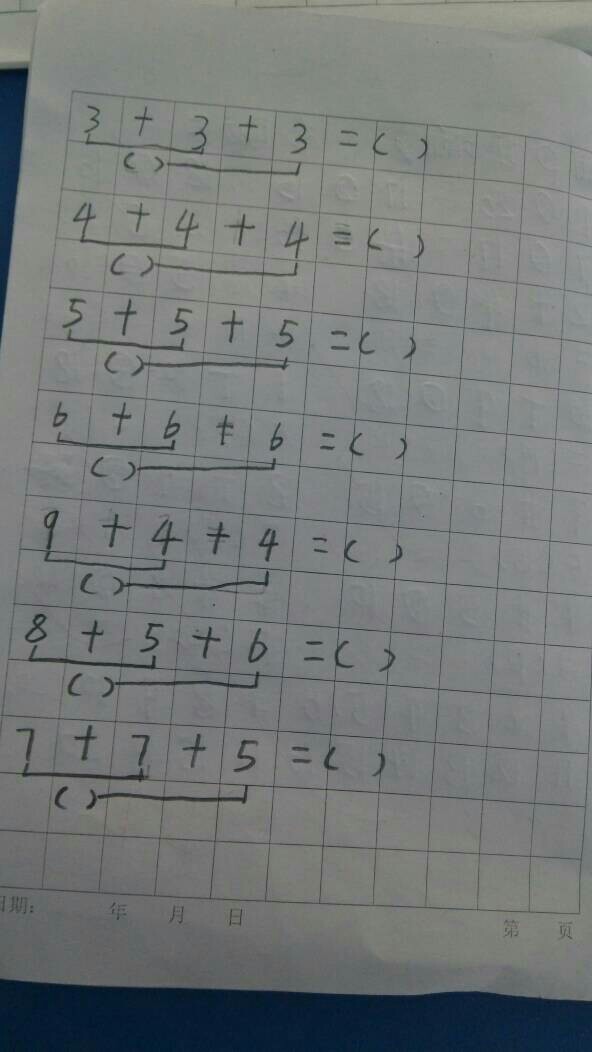 3 + 3 + 3 = ( )
( )
4 + 4 + 4 = ( )
( )
5 + 5 + 5 = ( )
( )
6 + 6 + 6 = ( )
( )
9 + 4 + 4 = ( )
( )
8 + 5 + 6 = ( )
( )
7 + 7 + 5 = ( )
( )
日期: 年 月 日 第 页